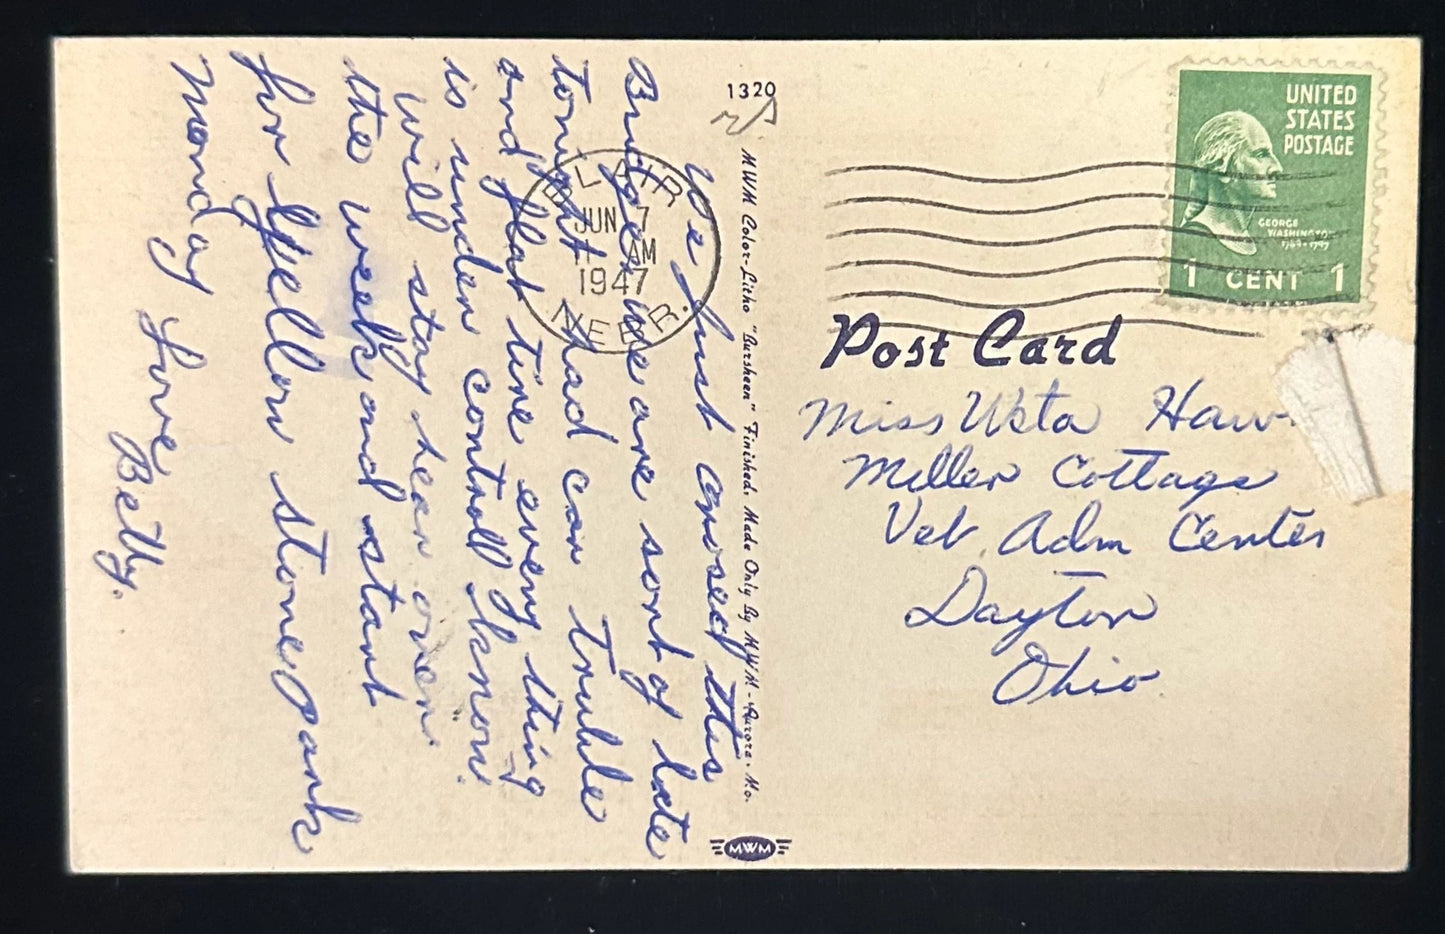 1320
We just crosed this
Bridge we are sort of late
tonight had car truble
and flat tire every thing
is under controll know.
will stay hear over
the week and start
for Yellow stone park
monday Love
Betty.
BLAIR
JUN 7
AM
1947
NEBR.
MWM Color-Litho "Bursheen" Finished. Made Only By MWM - Aurora - Mo.
MWM
UNITED
STATES
POSTAGE
GEORGE
WASHINGTON
1 CENT 1
Post Card
Miss
Miller Cottage
Vet Adm Center
Dayton
Ohio